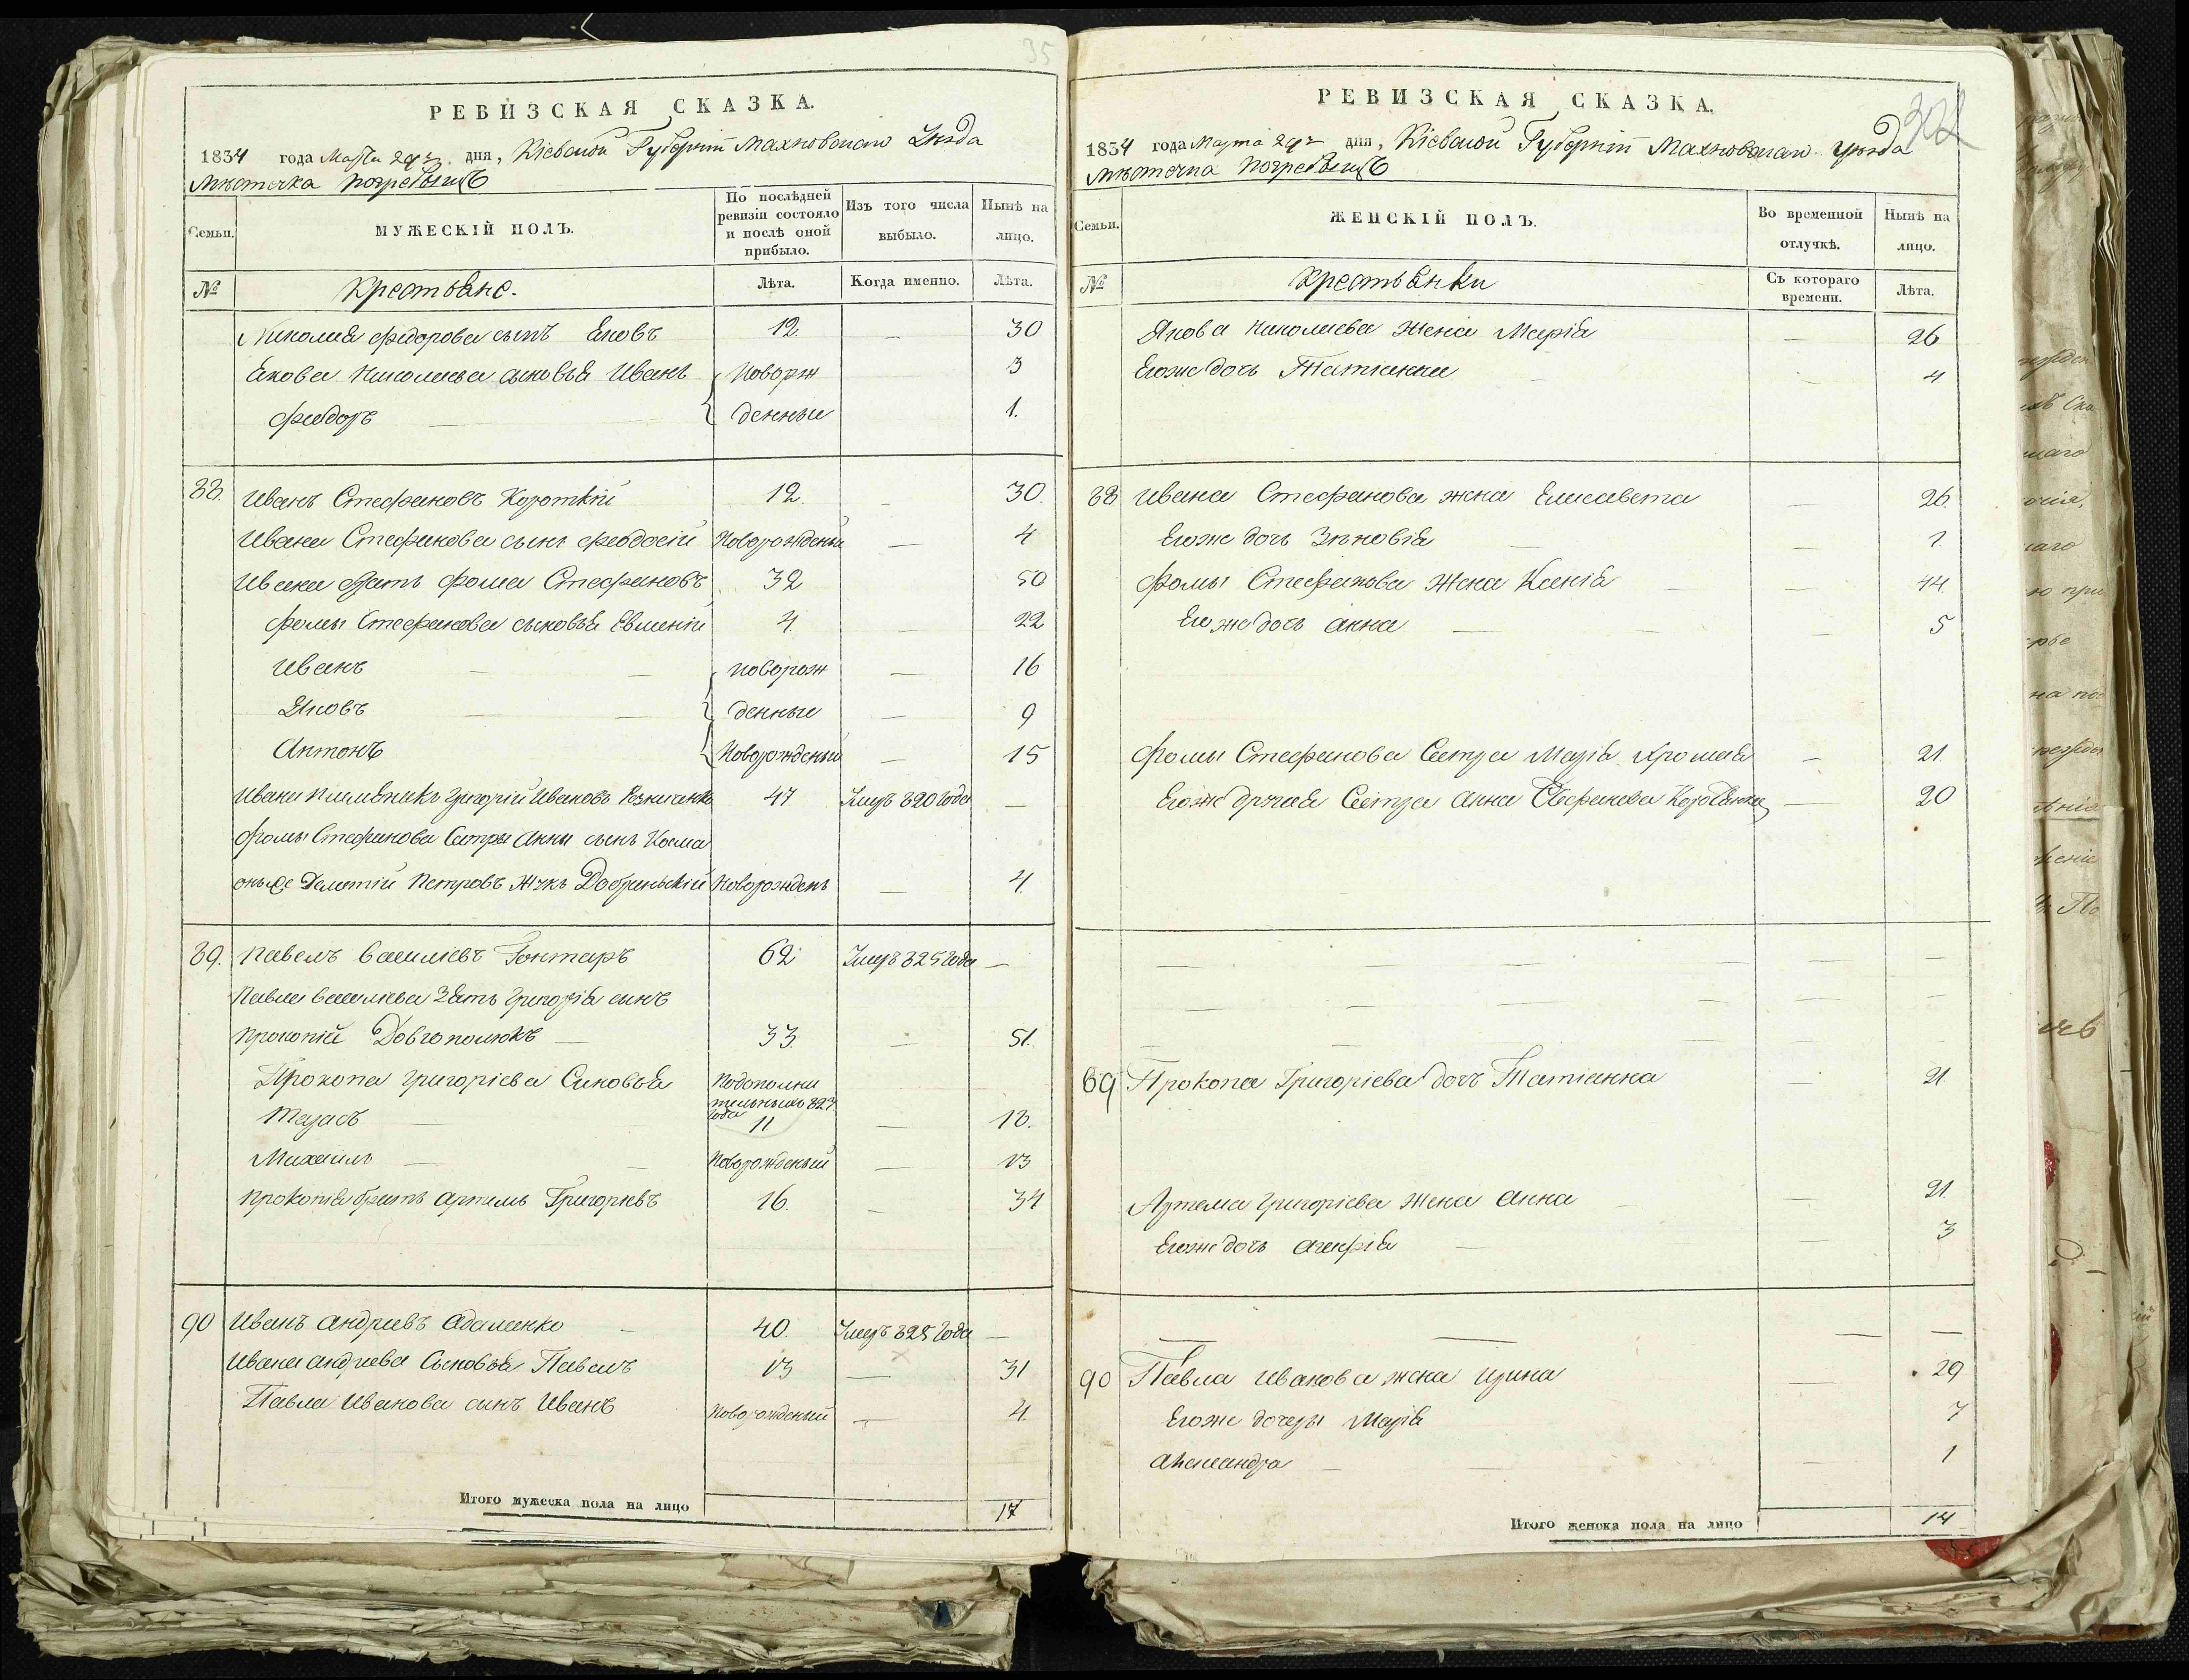 35
РЕВИЗСКАЯ СКАЗКА.
1834 года Марта 29го дня, Кіевской Губерніи Махновскаго Уѣзда
Мѣстечка Погребыщъ
Семьи.
МУЖЕСКІЙ ПОЛЪ.
По послѣдней ревизіи состояло и послѣ оной прибыло.
Изъ того числа выбыло.
Нынѣ на лицо.
№
Крестьяне.
Лѣта.
Когда именно.
Лѣта.
Николая Федорова сынъ Яковъ 12 — 30
Якова Николаева сыновья Иванъ Новорж 3
Феодоръ денные 1.
88. Иванъ Стефановъ Короткій 12. — 30.
Ивана Стефанова сынъ Феодосій Новорожденый — 4
Ивана Зять Фома Стефановъ 32 50
Фомы Стефанова сыновья Евменій 4. — 22
Иванъ — — новорож — 16
Яковъ — — денные — 9
Антонъ Новорожденый — 15
Ивана Племѣникъ Григорій Ивановъ 47 Умеръ 820 года —
Фомы Стефанова Сестры Анны сынъ Косма
Петровъ Жукъ Новорожденъ — 4.
89. Павелъ Василіевъ Гонтаръ 62 Умеръ 825 года —
Павла Василіева Зять Григорія сынъ
Прокопій Довгополюкъ — 33. — 51.
Прокопа Григоріева Сыновья Подополни
тельныхъ 827
года
Тарасъ — 11 — 18.
Михаилъ — — Новорожденый — 13
Прокопія братъ Артемъ Григоріевъ 16. — 34
90 Иванъ Андреевъ Адаменко — 40. Умеръ 825 года —
Ивана Андреева Сыновья Павелъ 13 — 31
Павла Иванова сынъ Иванъ Новорожденый — 4.
Итого мужеска пола на лицо 17
302
РЕВИЗСКАЯ СКАЗКА.
1834 года Марта 29го дня, Кіевской Губерніи Махновскаго Уѣзда
Мѣстечка Погребыщъ
Семьи.
ЖЕНСКІЙ ПОЛЪ.
Во временной отлучкѣ.
Нынѣ на лицо.
№
Крестьянки
Съ котораго времени.
Лѣта.
Якова Николаева жена Марія — 26
Егоже дочь Татіанна — 4
88 Ивана Стефанова жена Елисавета — 26.
Егоже дочь Зѣновія — 1.
Фомы Стефанова Жена Ксенія — — 44.
Егоже дочь Анна — — — 5
Фомы Стефанова Сестра Марія — 21.
Егоже другая Сестра Анна Стефанова — 20
89 Прокопа Григоріева дочь Татіанна 21.
Артема Григоріева жена Анна — 21.
Егоже дочь Агафія — 3
90 Павла Иванова жена Ирина — 29
Егоже дочеры Марія 7
Александра — — — 1
Итого женска пола на лицо 14